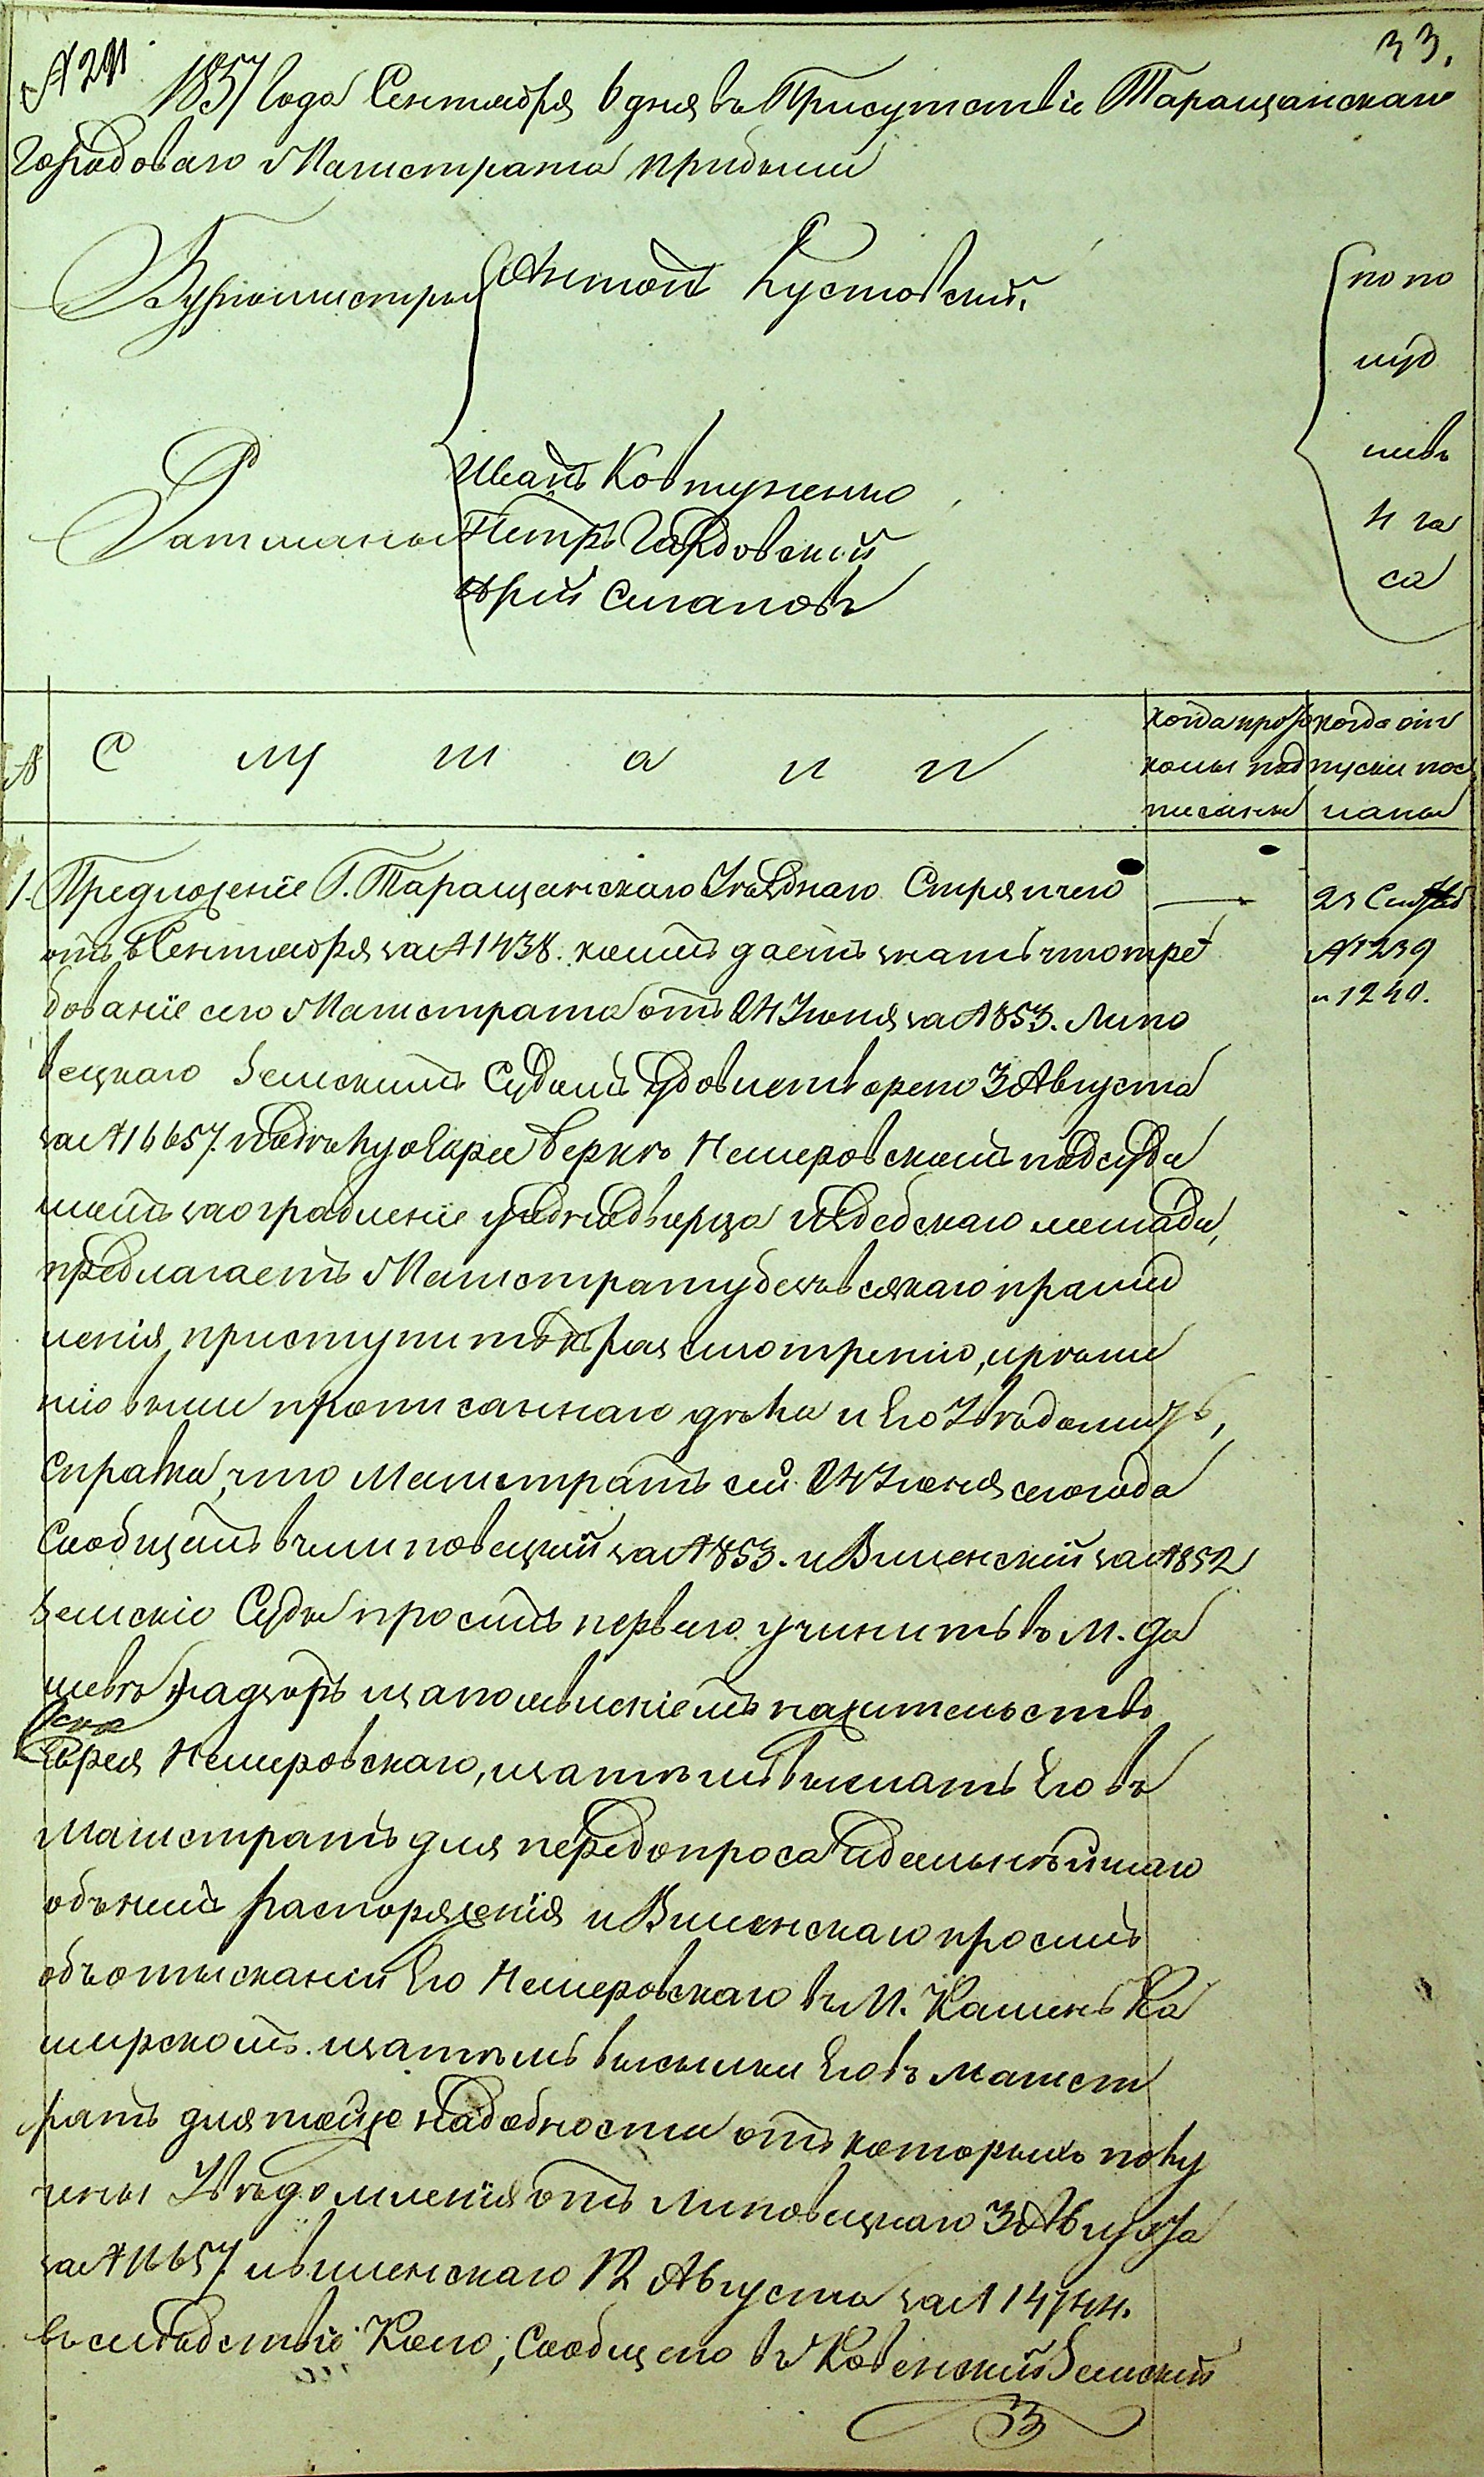 33.
№ 211
1857 Года Сентября 6 дня въ Присутствіе Таращанскаго
Городоваго Магистрата прибыли
Бургомистры Антонъ Кустовскій.
по по
луд
Иванъ Ковтуненко
Ратманы Петръ Гордовскій
Юрій Сигаповъ
ни въ
4 ча
са
№ С л у ш а л и
когда прото колы под писаны
когда от пуски пос ланы
1. Предложеніе Г. Таращанскаго Уѣзднаго Стряпчего
отъ 6 Сентября за № 1438. коимъ даетъ знать что тре
бованіе сего Магистрата отъ 24 Іюня за № 853. Липо
вецкаго Земскимъ Судомъ удовлетворено 3 Августа
за № 16657. по дѣлу о Еврее Беркѣ Немеровскомъ подсуди
момъ за ограбленіе у лошади,
предлагаетъ Магистрату безъ всякаго промед
ленія приступить къ разсмотренію, и рѣше
нію выше прописаннаго дѣла и Его Увѣдомить,
Справка, что Магистратъ сей 24 Іюня сего года
Сообщалъ въ Липовецкій за № 853. и Виленскій за № 852
Земскіе Суды просилъ перваго учинить въ М. Да
шевѣ надзоръ за жительствѣ
Еврея Немеровскаго, и затѣмъ выслать Его въ
Магистратъ для передопроса и дальнѣйшаго
объ немъ распоряженія и Виленскаго просилъ
объ отысканіи Его Немеровскаго въ М. Каминь Ка
ширскомъ. и затѣмъ высылки Его въ Магист
ратъ для тойже надобности отъ которыхъ полу
чены Увѣдомленія отъ Липовецкаго 3 Августа
за № 16657. и Виленскаго 12 Августа за № 14744.
въ слѣдствіе Коего, Сообщено въ Ковенскій Земскій
23 Сентяб
№ 1239
и 1240.